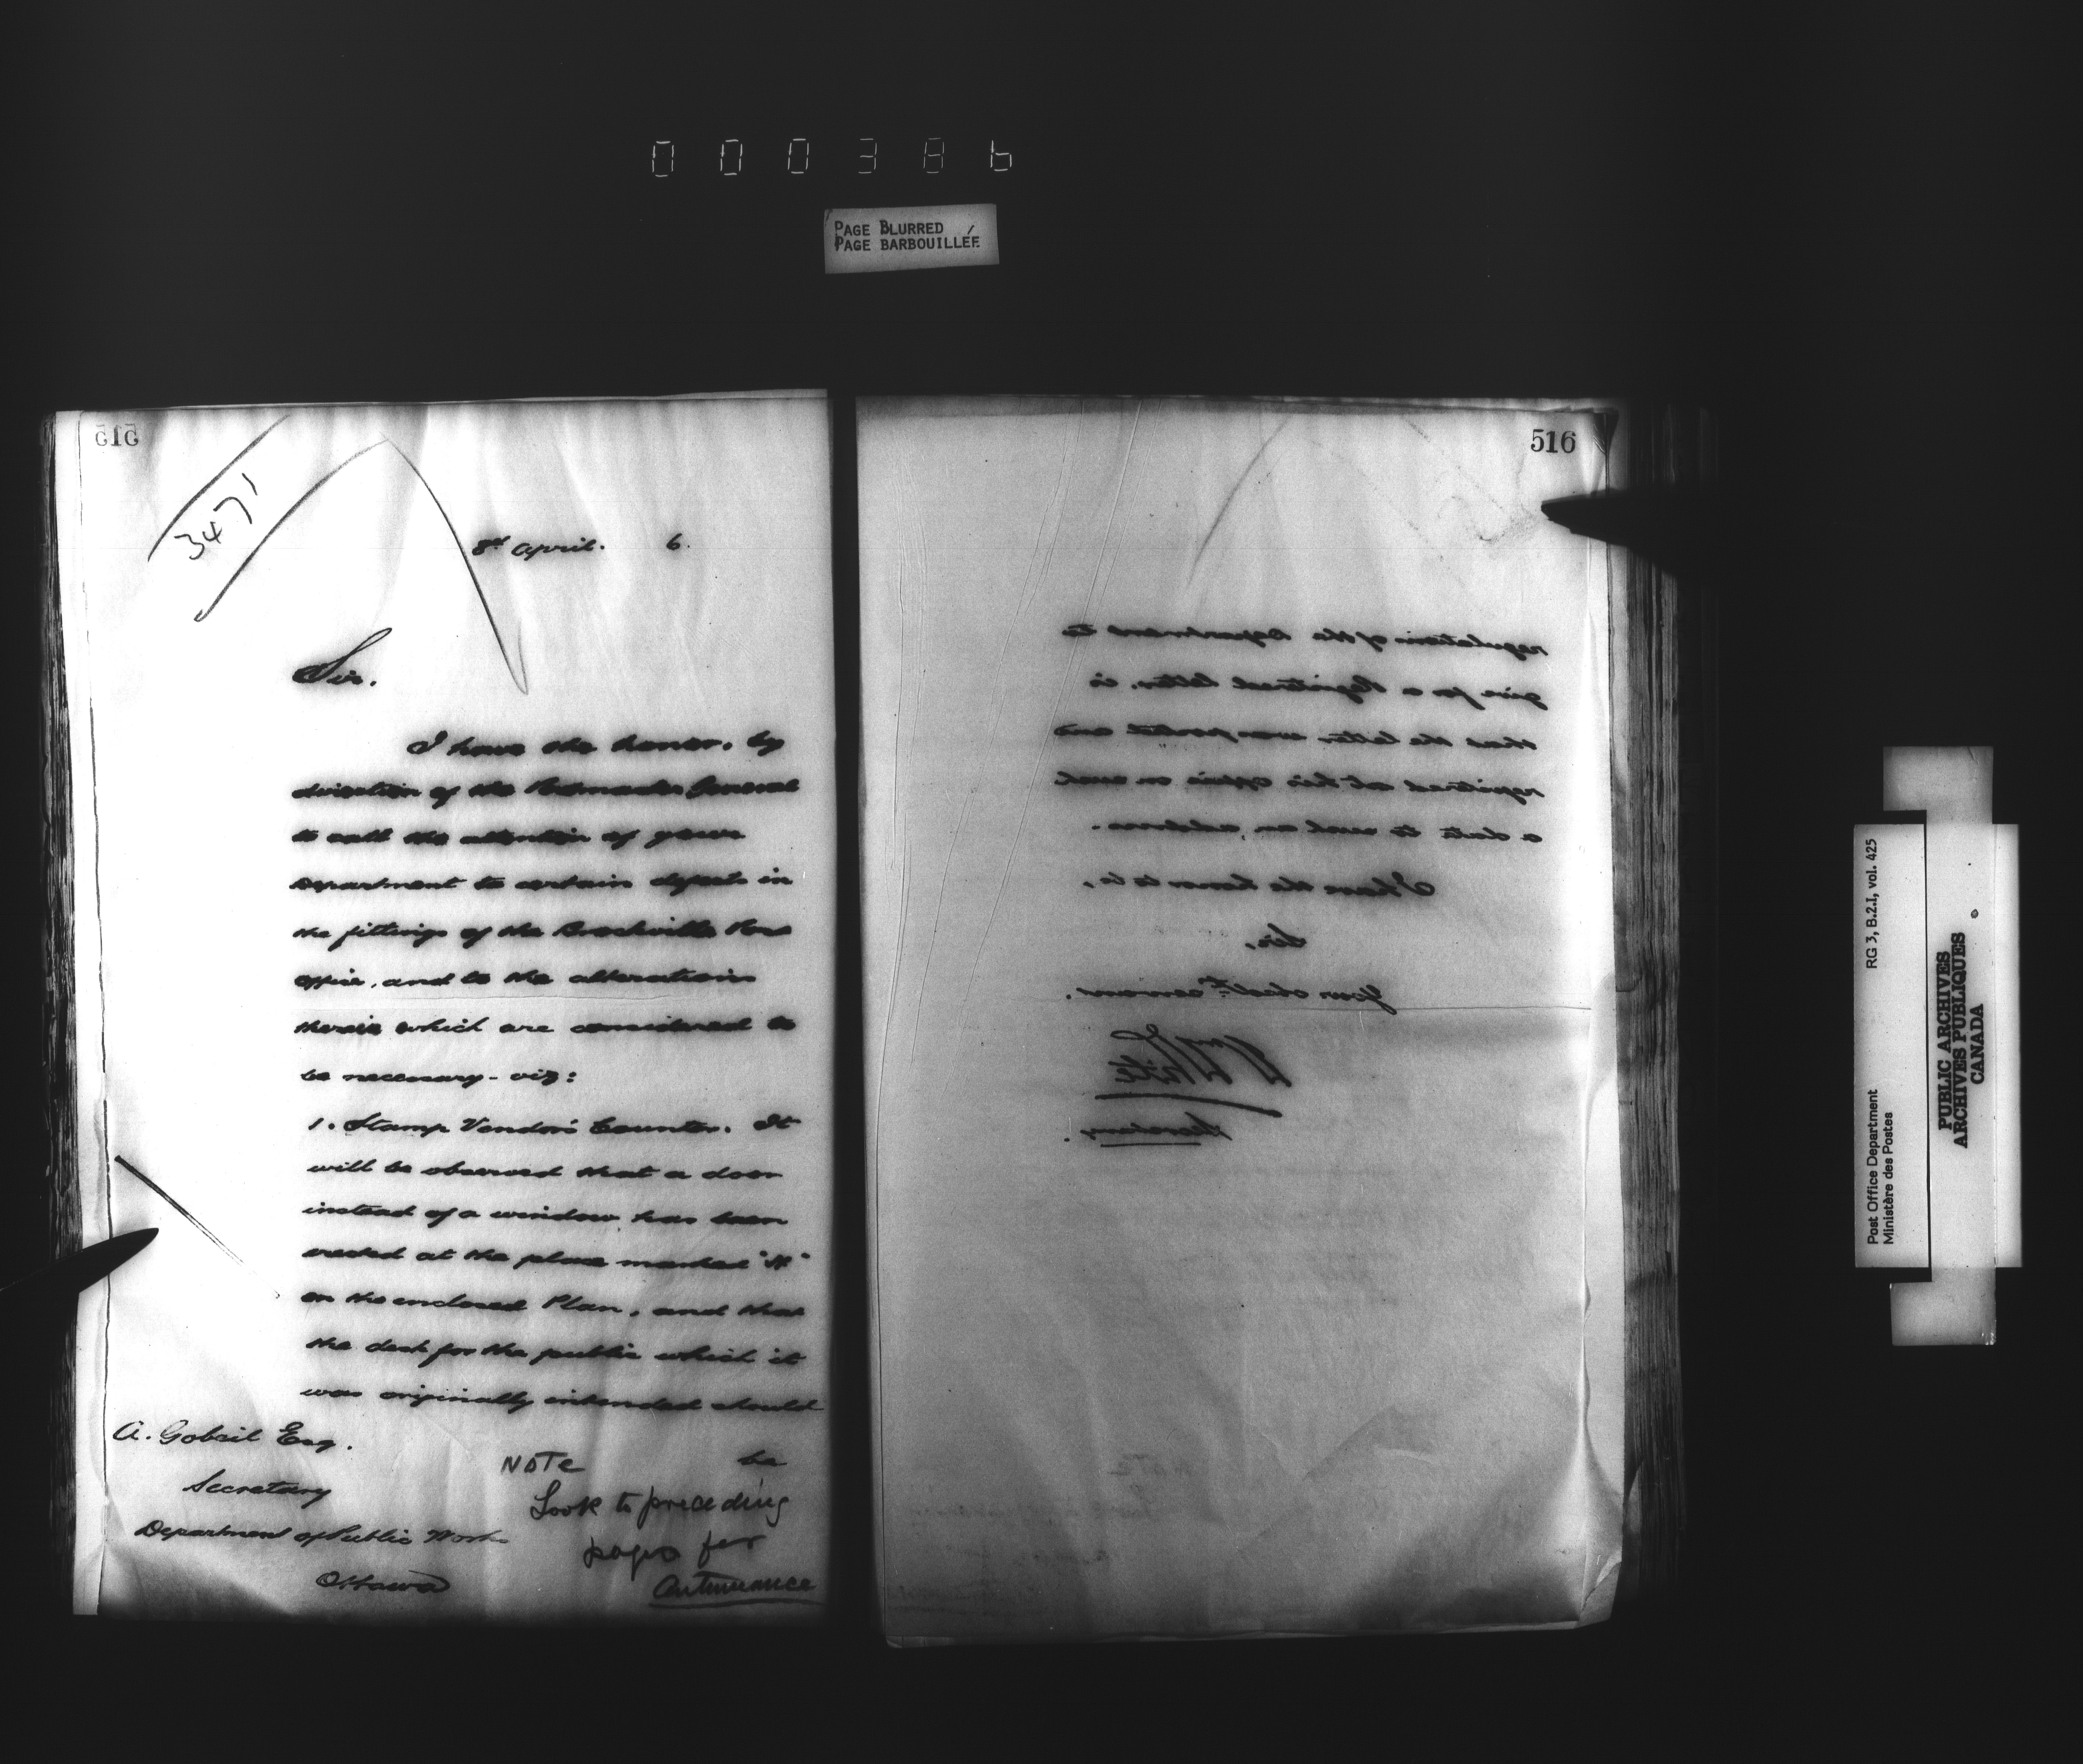 000386
PAGE BLURRED
PAGE BARBOUILLÉE
515
3471
8th April. 6.
Sir.
I have the honor, by
direction of the Postmaster General
to call the attention of your
Department to certain defects in
the fittings of the Brockville Post
Office, and to the alterations
therein which are considered to
be necessary - viz:
1. Stamp Vendor's Counter. It
will be observed that a door
instead of a window has been
erected at the place marked "H"
on the enclosed Plan, and that
the desk for the public which it
was originally intended should
be
A. Gobeil Esq.
Secretary
Department of Public Works
Ottawa
NOTE
Look to preceding
pages for
Continuance
516
regulations of the Department to
give for a Registered letter, is
that the letter was posted and
registered at his office on such
a date to such an address.
I have the honor to be,
Sir,
Your obedt. servant.
Wm White
Secretary.
RG 3, B.2.I, vol. 425
Post Office Department
Ministère des Postes
PUBLIC ARCHIVES
ARCHIVES PUBLIQUES
CANADA